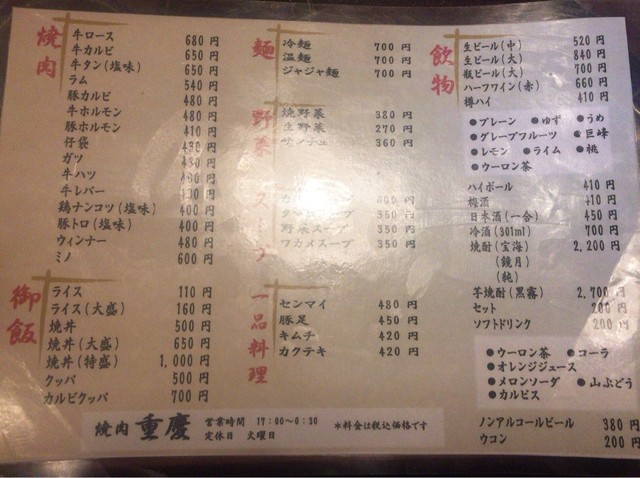 焼肉
牛ロース 680 円
牛カルビ 650 円
牛タン(塩味) 650 円
ラム 540 円
豚カルビ 480 円
牛ホルモン 480 円
豚ホルモン 410 円
仔袋 430 円
ガツ 円
牛ハツ 480 円
牛レバー 円
鶏ナンコツ(塩味) 400 円
豚トロ(塩味) 400 円
ウィンナー 480 円
ミノ 600 円
御飯
ライス 110 円
ライス(大盛) 160 円
焼丼 500 円
焼丼(大盛) 650 円
焼丼(特盛) 1,000 円
クッパ 500 円
カルビクッパ 700 円
麺
冷麺 700 円
温麺 700 円
ジャジャ麺 700 円
野菜
焼野菜 380 円
生野菜 270 円
サンチュ 360 円
スープ
円
スープ 350 円
野菜スープ 350 円
ワカメスープ 350 円
一品料理
センマイ 480 円
豚足 450 円
キムチ 420 円
カクテキ 420 円
飲物
生ビール(中) 520 円
生ビール(大) 840 円
瓶ビール(大) 700 円
ハーフワイン(赤) 660 円
樽ハイ 410 円
●プレーン ●ゆず ●うめ
●グレープフルーツ ●巨峰
●レモン ●ライム ●桃
●ウーロン茶
ハイボール 410 円
梅酒 410 円
日本酒(一合) 450 円
冷酒(301ml) 700 円
焼酎(宝海) 2,200 円
(鏡月)
(純)
芋焼酎(黒霧) 2,700 円
セット 200 円
ソフトドリンク 200 円
●ウーロン茶 ●コーラ
●オレンジジュース
●メロンソーダ ●山ぶどう
●カルピス
ノンアルコールビール 380 円
ウコン 200 円
焼肉 重慶 営業時間 17:00〜0:30
定休日 火曜日
*料金は税込価格です